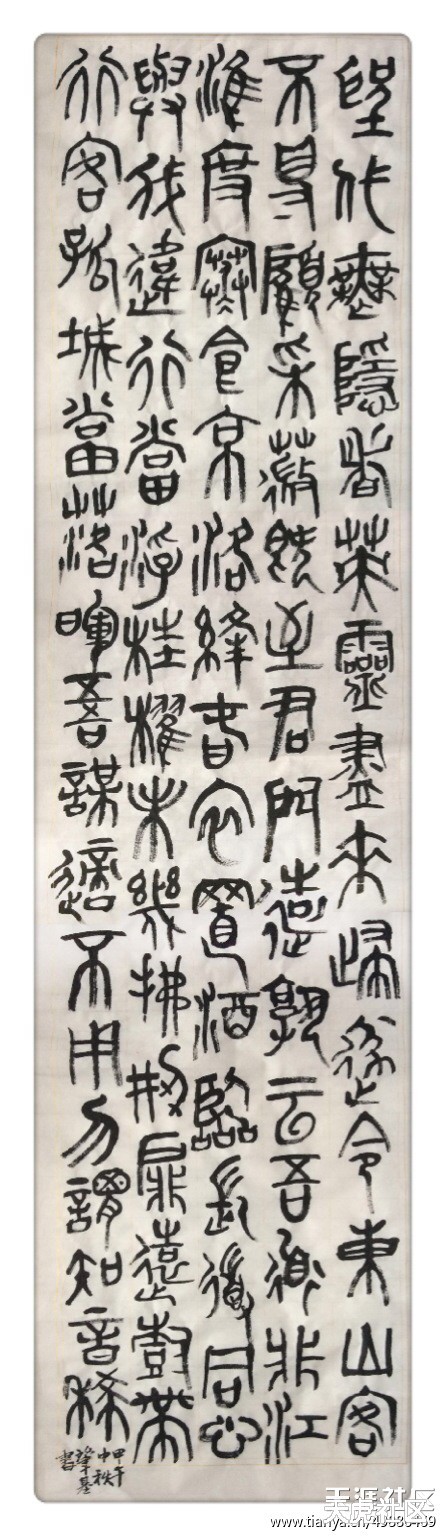 聖代無隱者英靈盡來歸遂令東山客
不得顧采薇既至君門遠孰云吾道非江
淮度寒食京洛縫春衣置酒臨長道同心
與我違行當浮桂櫂未幾拂荊扉遠樹帶
行客孤城當落暉吾謀適不用勿謂知音稀
甲午
中秋
肇基
書
天涯社区